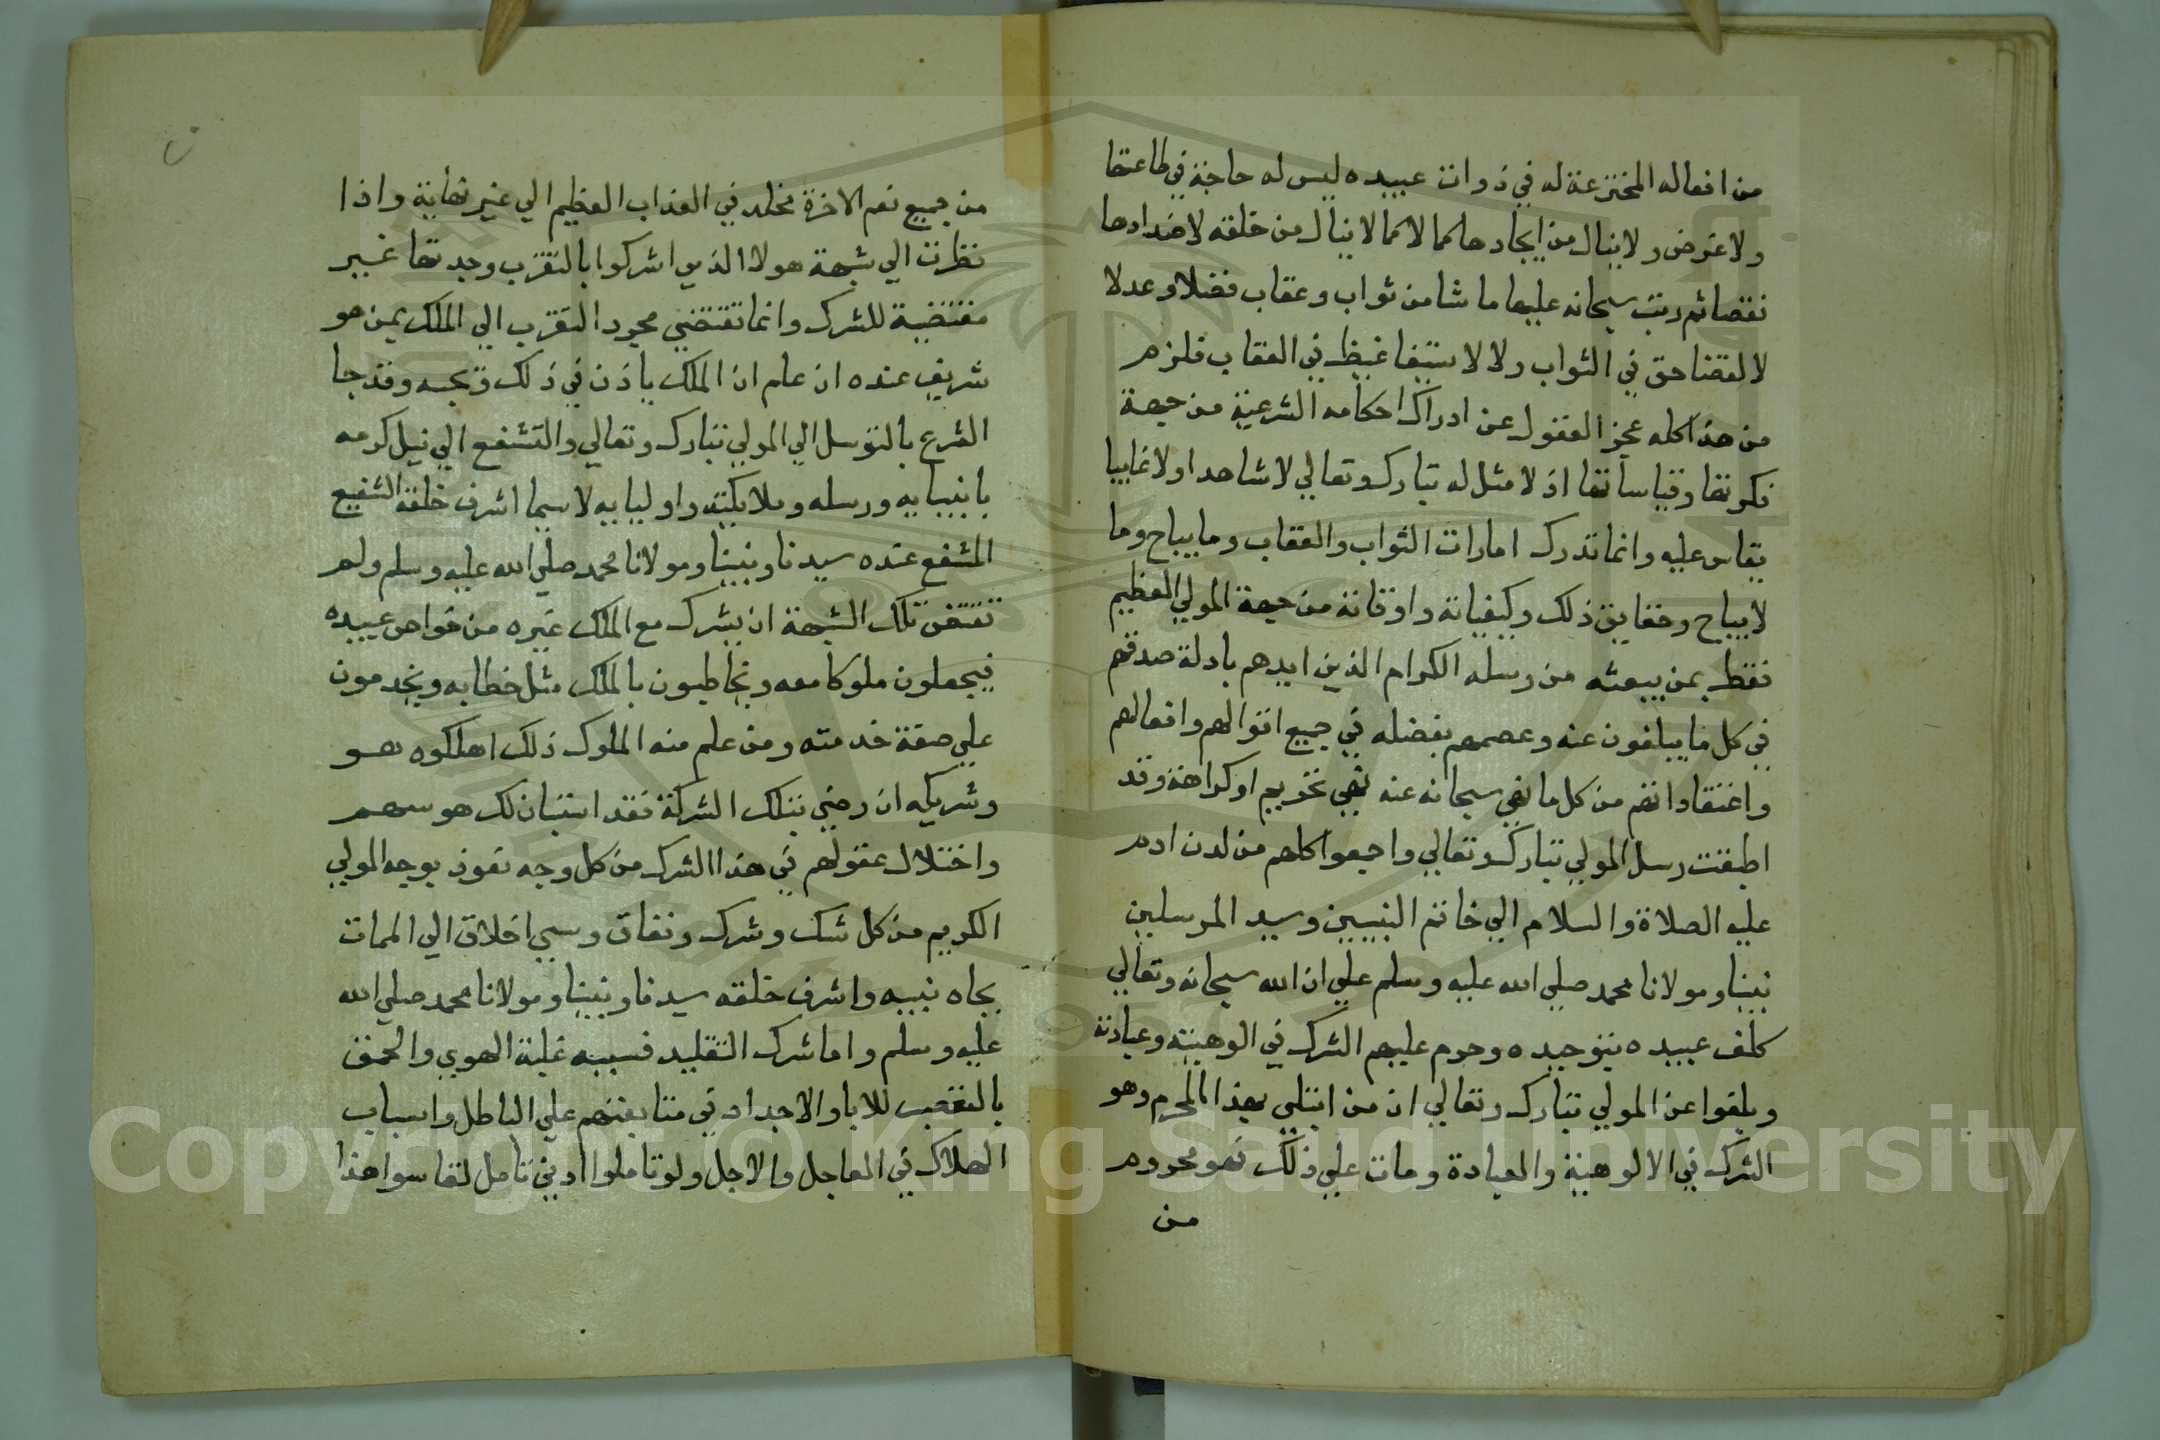 من افعاله المخترعة له في ذوات عبيده ليس له حاجة في طاعتها
ولا غرض ولا ينال من ايجادها كمالا كما لا ينال من خلقه لاضدادها
نقصا ثم رتب سبحانه عليها ما شا من ثواب وعقاب فضلا وعدلا
لا لقضا حق في الثواب ولا لاستيفا غيظ في العقاب فلزم
من هذا كله عجز العقول عن ادراك احكامه الشرعية من جهة
فكرتها وقياساتها اذ لا مثل له تبارك وتعالي لا شاهدا ولا غايبا
يقاس عليه وانما تدرك امارات الثواب والعقاب وما يباح وما
لا يباح وحقايق ذلك وكيفياته واوقاته من جهة المولي العظيم
فقط بمن يبعثه من رسله الكرام الذين ايدهم بادلة صدقهم
في كل ما يبلغون عنه وعصمهم بفضله في جميع اقوالهم وافعالهم
واعتقاداتهم من كل ما نهي سبحانه عنه نهي تحريم او كراهة وقد
اطبقت رسل المولي تبارك وتعالي واجمعوا كلهم من لدن ادم
عليه الصلاة والسلام الي خاتم النبيين وسيد المرسلين
نبينا ومولانا محمد صلي الله عليه وسلم علي ان الله سبحانه وتعالي
كلف عبيده بتوحيده وحرم عليهم الشرك في الوهيته وعبادته
وبلغوا عن المولي تبارك وتعالي ان من ابتلي بهذا المحرم وهو
الشرك في الالوهية والعبادة ومات علي ذلك فهو محروم
من
من جميع نعم الاخرة مخلد في العذاب العظيم الي غير نهاية واذا
نظرت الي شبهة هولا الذين اشركوا بالتقرب وجدتها غير
مقتضية للشرك وانما تقتضي مجرد التقرب الي الملك بمن هو
شريف عنده ان علم ان الملك ياذن في ذلك ويحبه وقد جا
الشرع بالتوسل الي المولي تبارك وتعالي والتشفع الي نيل كرمه
بانبيايه ورسله وملايكته واوليايه لا سيما اشرف خلقه الشفيع
المشفع عنده سيدنا ونبينا ومولانا محمد صلي الله عليه وسلم ولم
تقتض تلك الشبهة ان يشرك مع الملك غيره من خواص عبيده
فيجعلون ملوكا معه ويخاطبون بالملك مثل خطابه ويخدمون
علي صفة خدمته ومن علم منه الملوك ذلك اهلكوه هو
وشريكه ان رضي بتلك الشركة فقد استبان لك هوسهم
واختلال عقولهم في هذا الشرك من كل وجه نعوذ بوجه المولي
الكريم من كل شك وشرك ونفاق وسيي اخلاق الي الممات
بجاه نبيه واشرف خلقه سيدنا ونبينا ومولانا محمد صلي الله
عليه وسلم واما شرك التقليد فسببه غلبة الهوي والحمق
بالتعصب للابا والاجداد في متابعتهم علي الباطل واسباب
الهلاك في العاجل والاجل ولو تاملوا ادني تامل لقاسوا هذا
Copyright © King Saud University